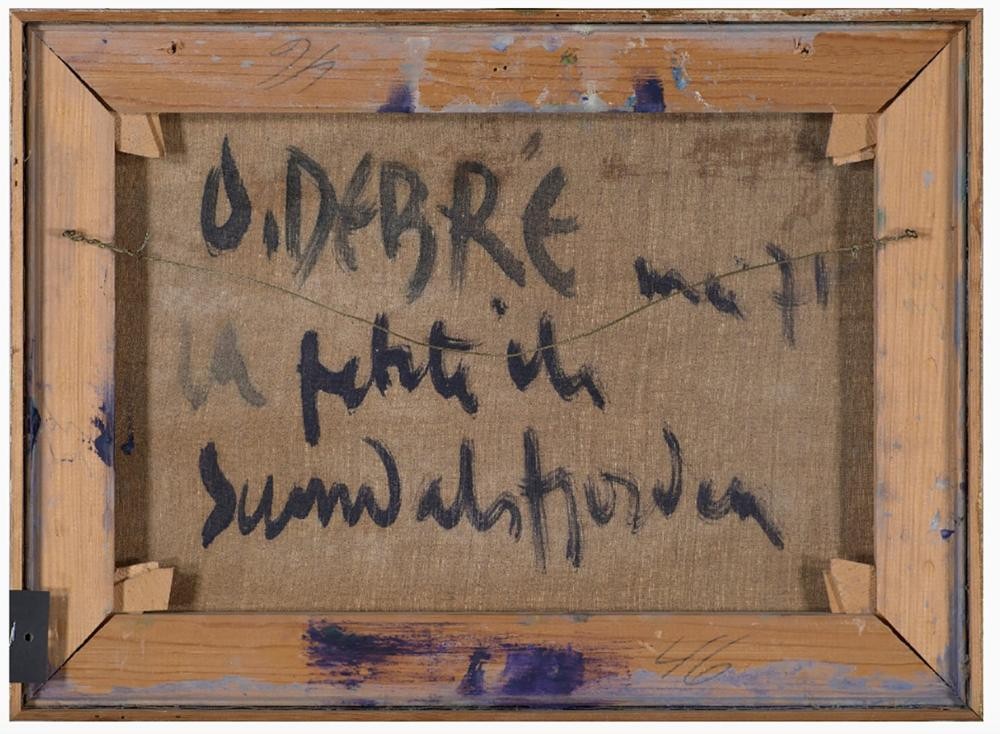 O. DEBRÉ
mai 71
la petite île
Sunndalsfjorden
46